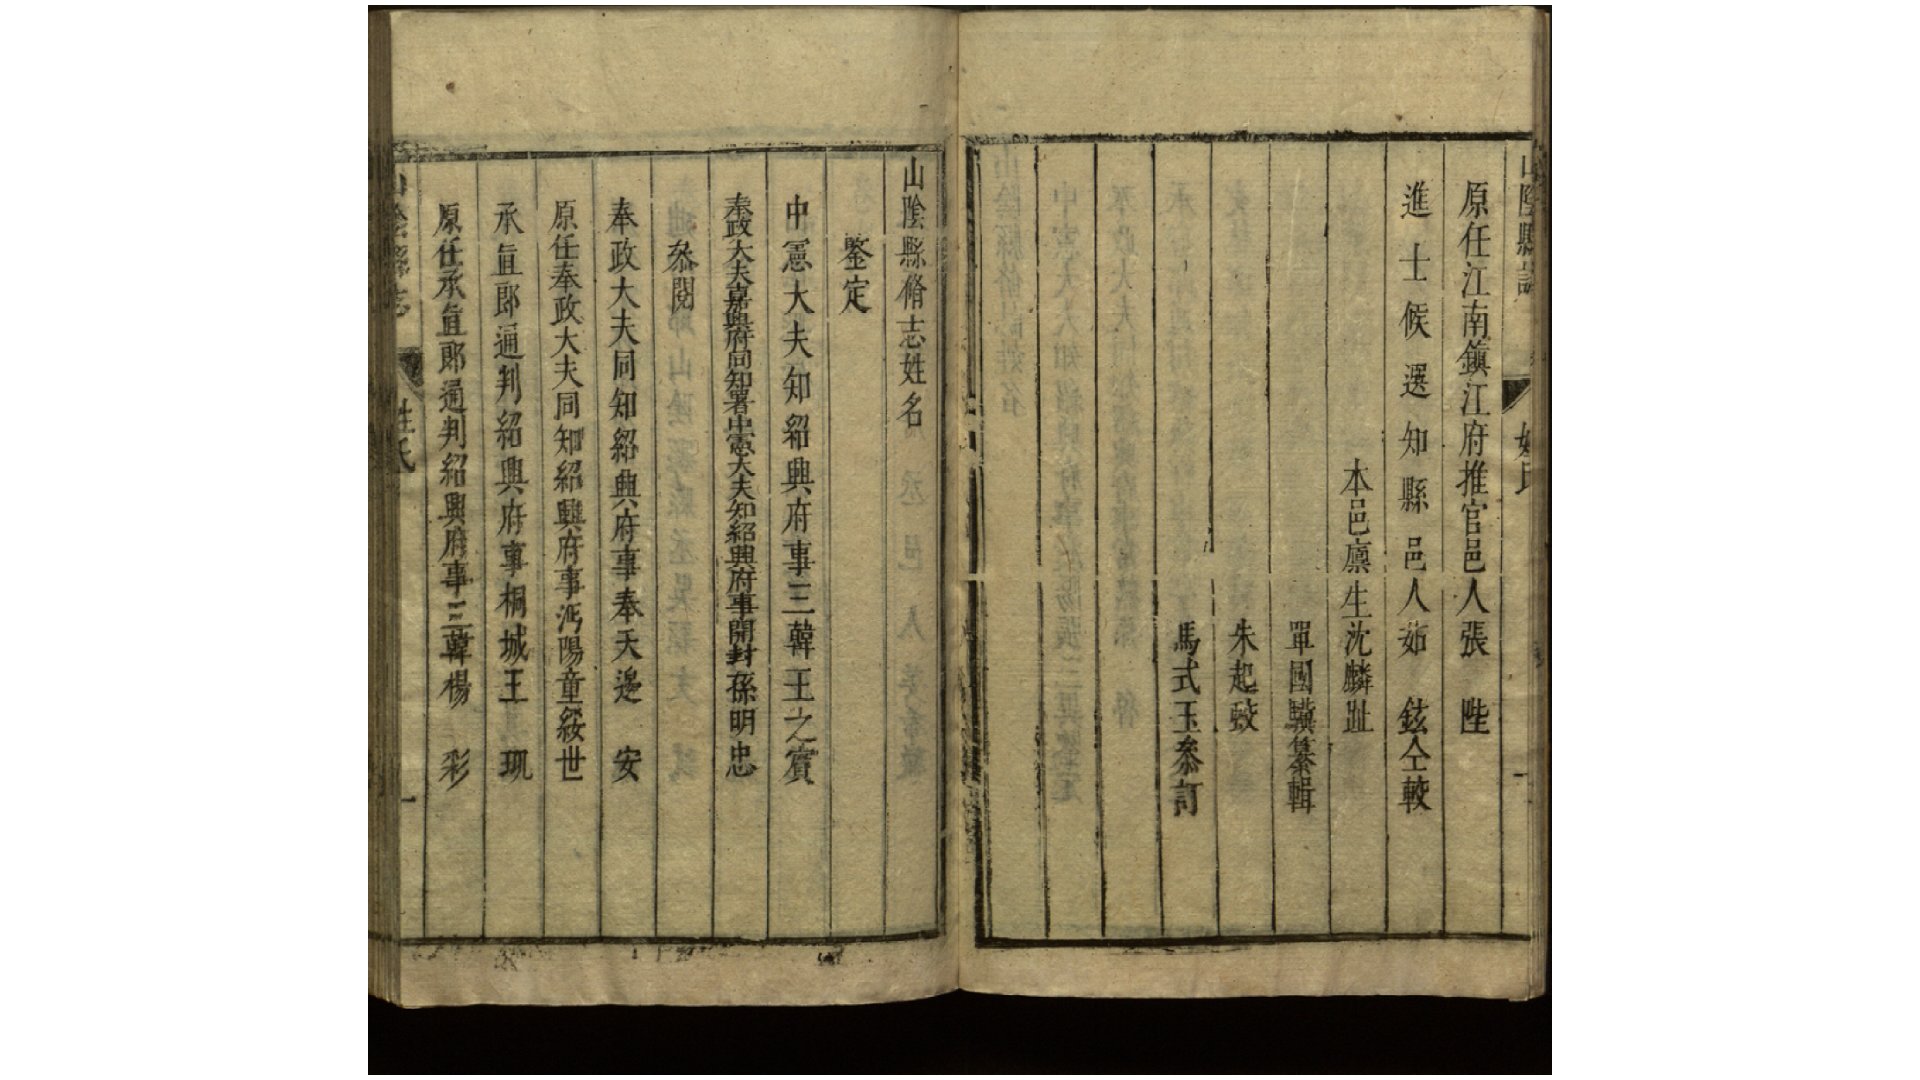 原任江南鎮江府推官邑人張　陛
進士候選知縣邑人茹　鉉仝較
本邑廩生沈麟趾
單國驥纂輯
朱起蛟
馬式玉叅訂
山陰縣脩志姓名
鑒定
中憲大夫知紹興府事三韓王之賓
奉政大夫嘉興府同知署中憲大夫知紹興府事開封孫明忠
叅閱
奉政大夫同知紹興府事奉天邊　安
原任奉政大夫同知紹興府事沔陽童綏世
承直郎通判紹興府事桐城王　珮
原任承直郎通判紹興府事三韓楊　彩
山陰縣志　姓氏　一